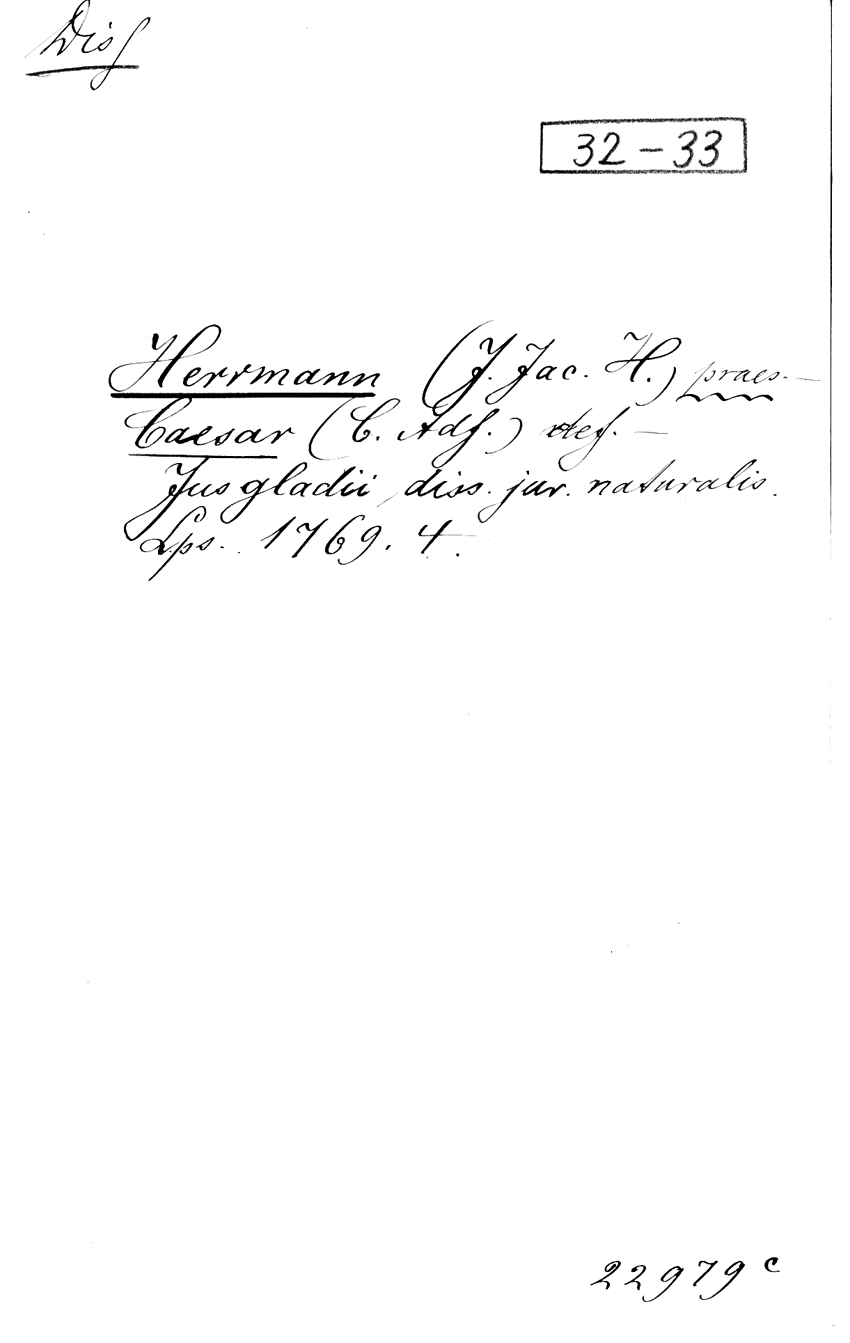 Diss
32 – 33
Herrmann (J. Jac. H.) praes. —
Caesar (C. Adf.) def. —
Jus gladii, diss. jur. naturalis.
Lps. 1769. 4.
22979 c